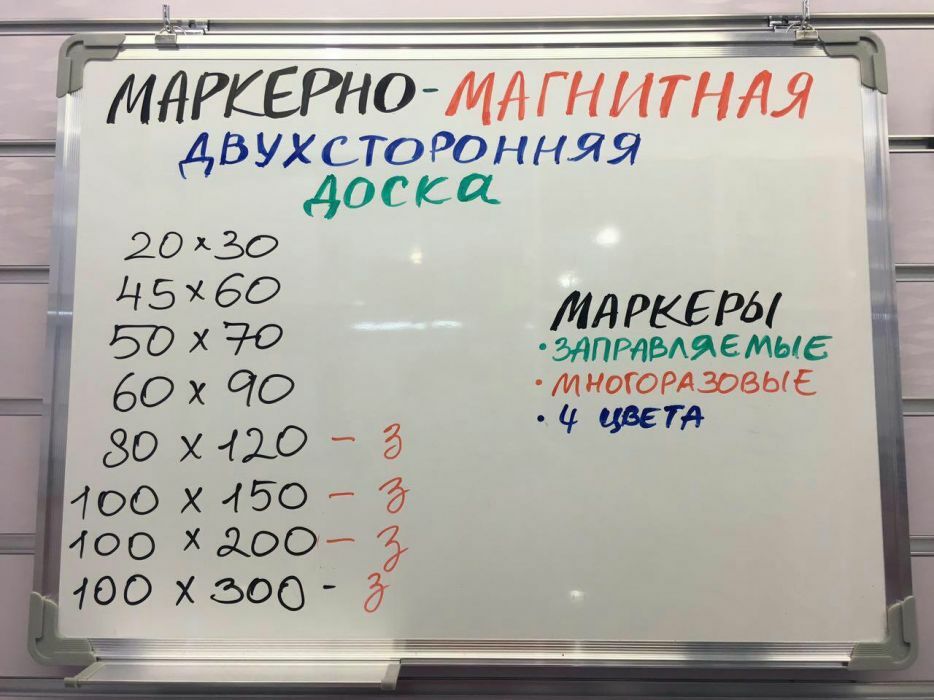 МАРКЕРНО-МАГНИТНАЯ
ДВУХСТОРОННЯЯ
ДОСКА
20 х 30
45 х 60
50 х 70
60 х 90
80 х 120 - з
100 х 150 - з
100 х 200 - з
100 х 300 - з
МАРКЕРЫ
• ЗАПРАВЛЯЕМЫЕ
• МНОГОРАЗОВЫЕ
• 4 ЦВЕТА